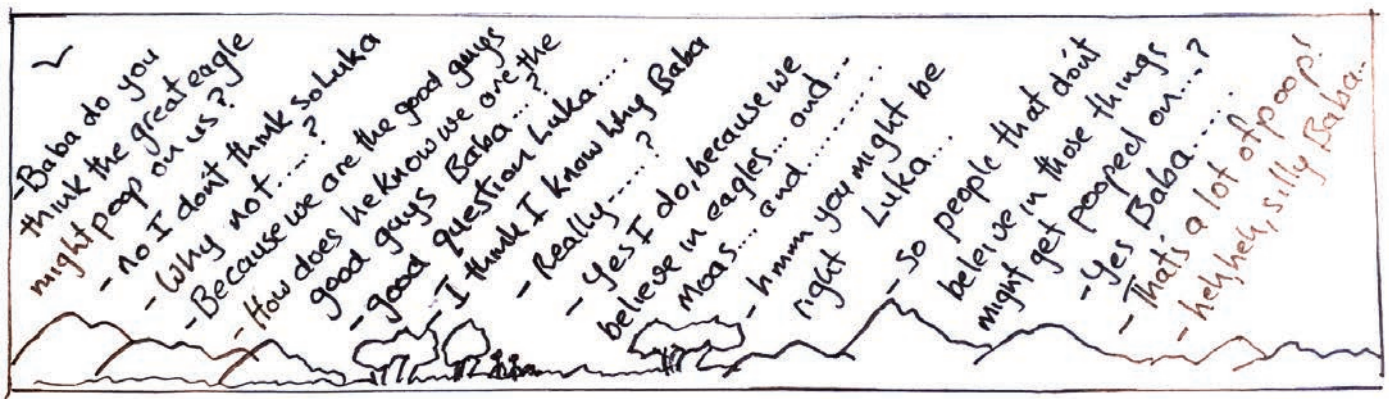 -Baba do you
think the great eagle
might poop on us?
- no I don't think so Luka
- Why not.....?
-Because we are the good guys
-How does he know we are the
good guys Baba...?
-good question Luka.....
-I think I know why Baba
-Really.....?
-Yes I do, because we
believe in eagles... and...
Moas.... and..........
-hmm you might be
right Luka...
-so people that don't
beleive in those things
might get pooped on....?
-Yes Baba.....
-That's a lot of poop!
-heh,heh, silly Baba..